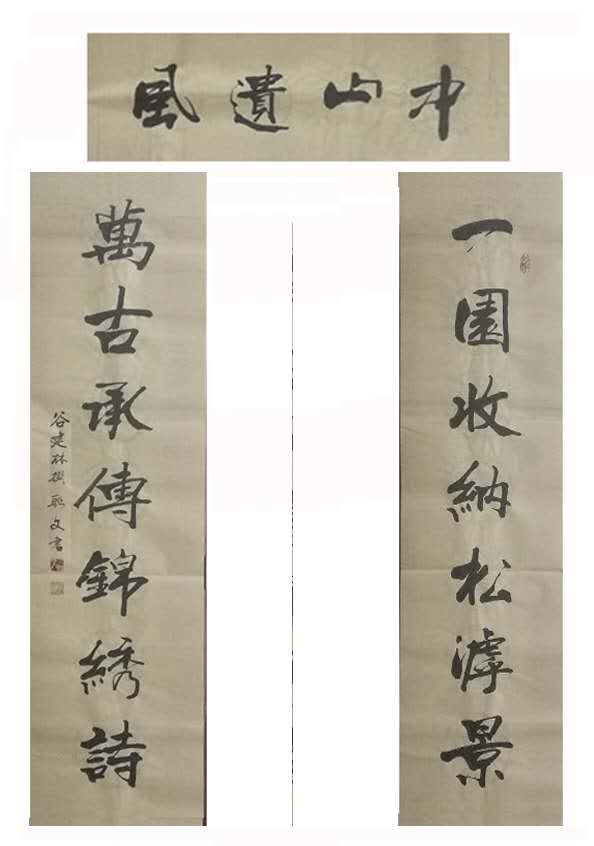 中山遺風
一園收納松滹景
萬古承傳錦綉詩
谷建林撰 文書